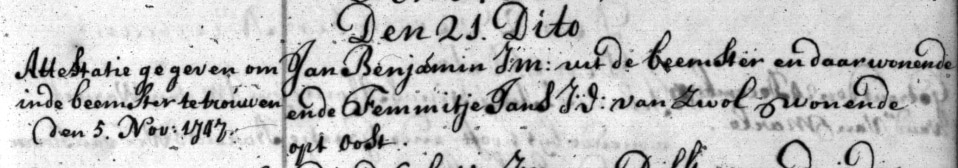 Den 21. Dito
Attestatie gegeven om
inde beemster te trouwen
den 5. Nov: 1717.
Jan Benjamin J:m: uit de beemster en daar wonende
ende Femmitje Jans J:d: van Zwol wonende
opt oost.